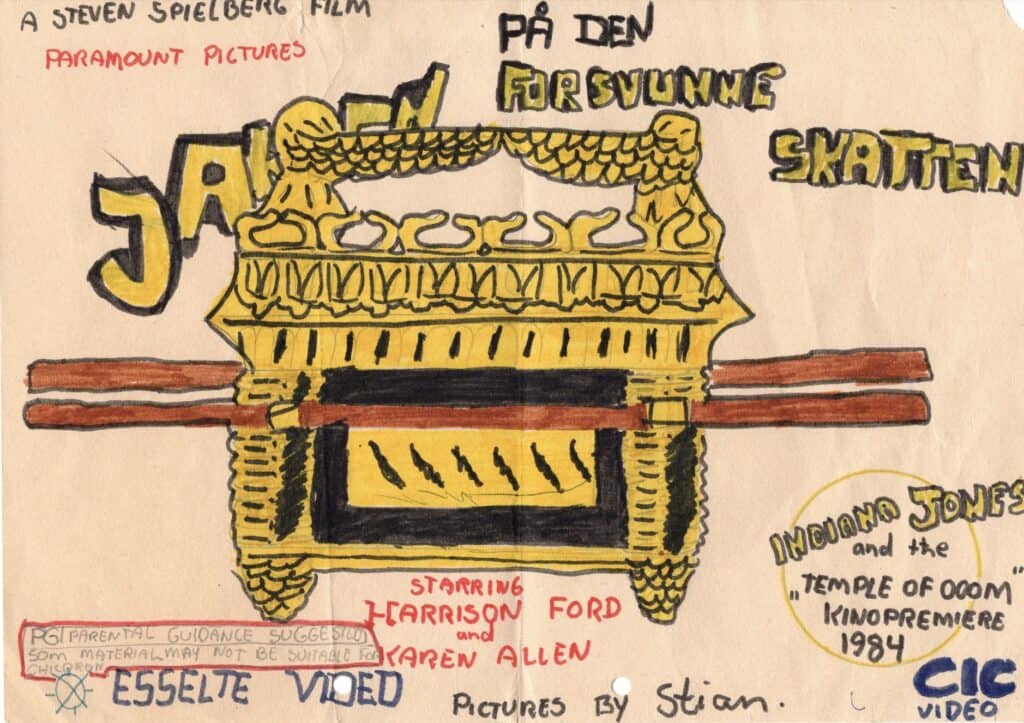 A STEVEN SPIELBERG FILM
PARAMOUNT PICTURES
JAKTEN
PÅ DEN
FORSVUNNE
SKATTEN
INDIANA JONES
and the
„TEMPLE OF OOOM"
KINOPREMIERE
1984
STARRING
HARRISON FORD
and
KAREN ALLEN
PG PARENTAL GUIDANCE SUGGESTED
SOM MATERIAL MAY NOT BE SUITABLE FOR
CHILDREN
ESSELTE VIDEO
PICTURES BY Stian.
CIC
VIDEO